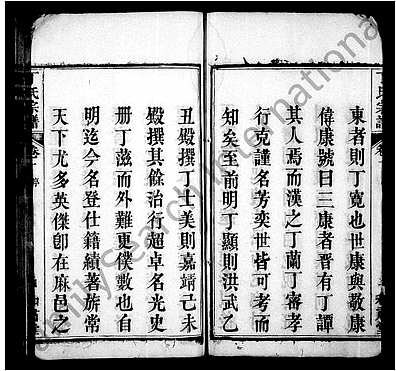 東者則丁寬也世康與敬康
偉康號曰三康者晉有丁譚
其人焉而漢之丁蘭丁審孝
行克謹名芳奕世皆可考而
知矣至前明丁顯則洪武乙
丑殿撰丁士美則嘉靖己未
殿撰其餘治行超卓名光史
册丁滋而外難更僕數也自
明迄今名登仕籍績著旂常
天下尤多英傑卽在麻邑之
氏宗譜
卷
FamilySearch International